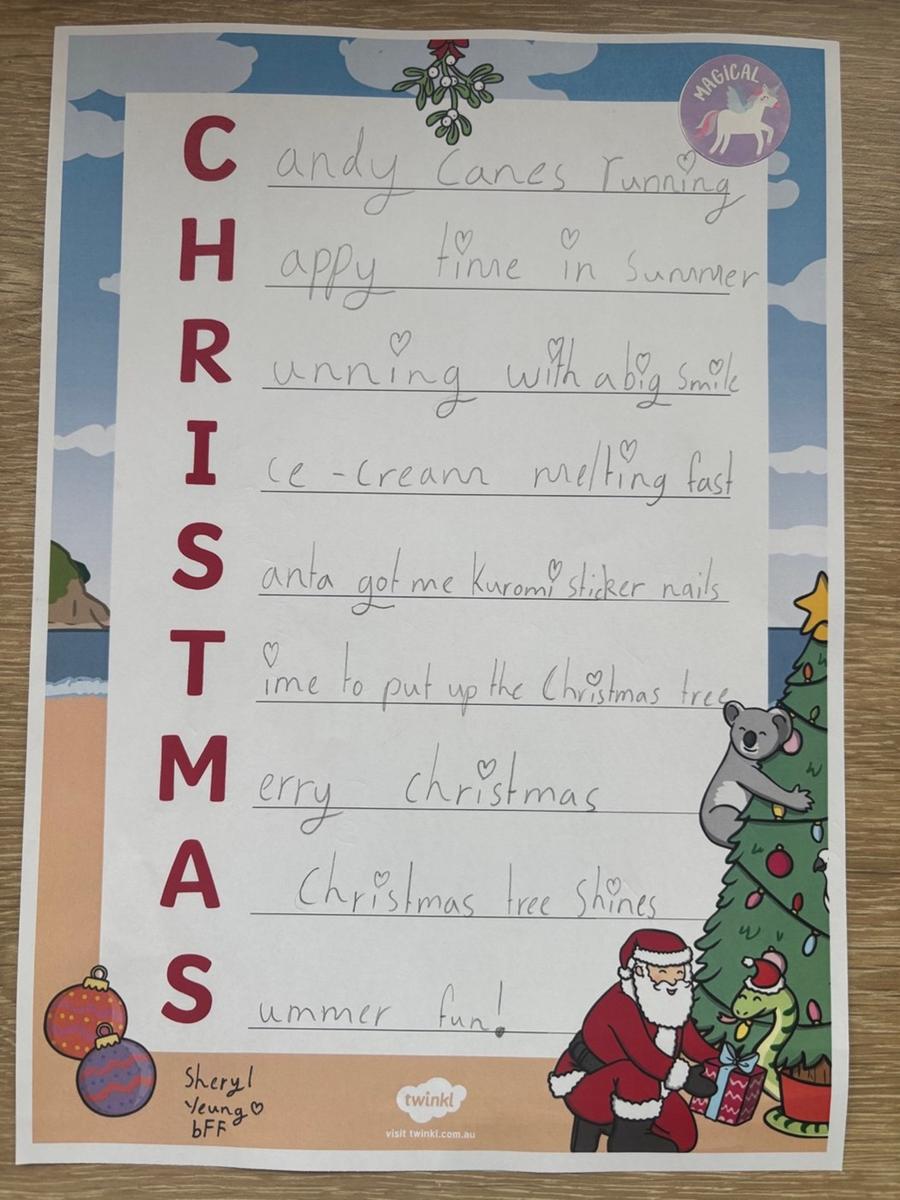 MAGICAL
Candy Canes running
Happy time in Summer
Running with a big smile
Ice-cream melting fast
Santa got me Kuromi sticker nails
Time to put up the Christmas tree
Merry christmas
A Christmas tree Shines
Summer fun!
Sheryl
Yeung
bFF
twinkl
visit twinkl.com.au